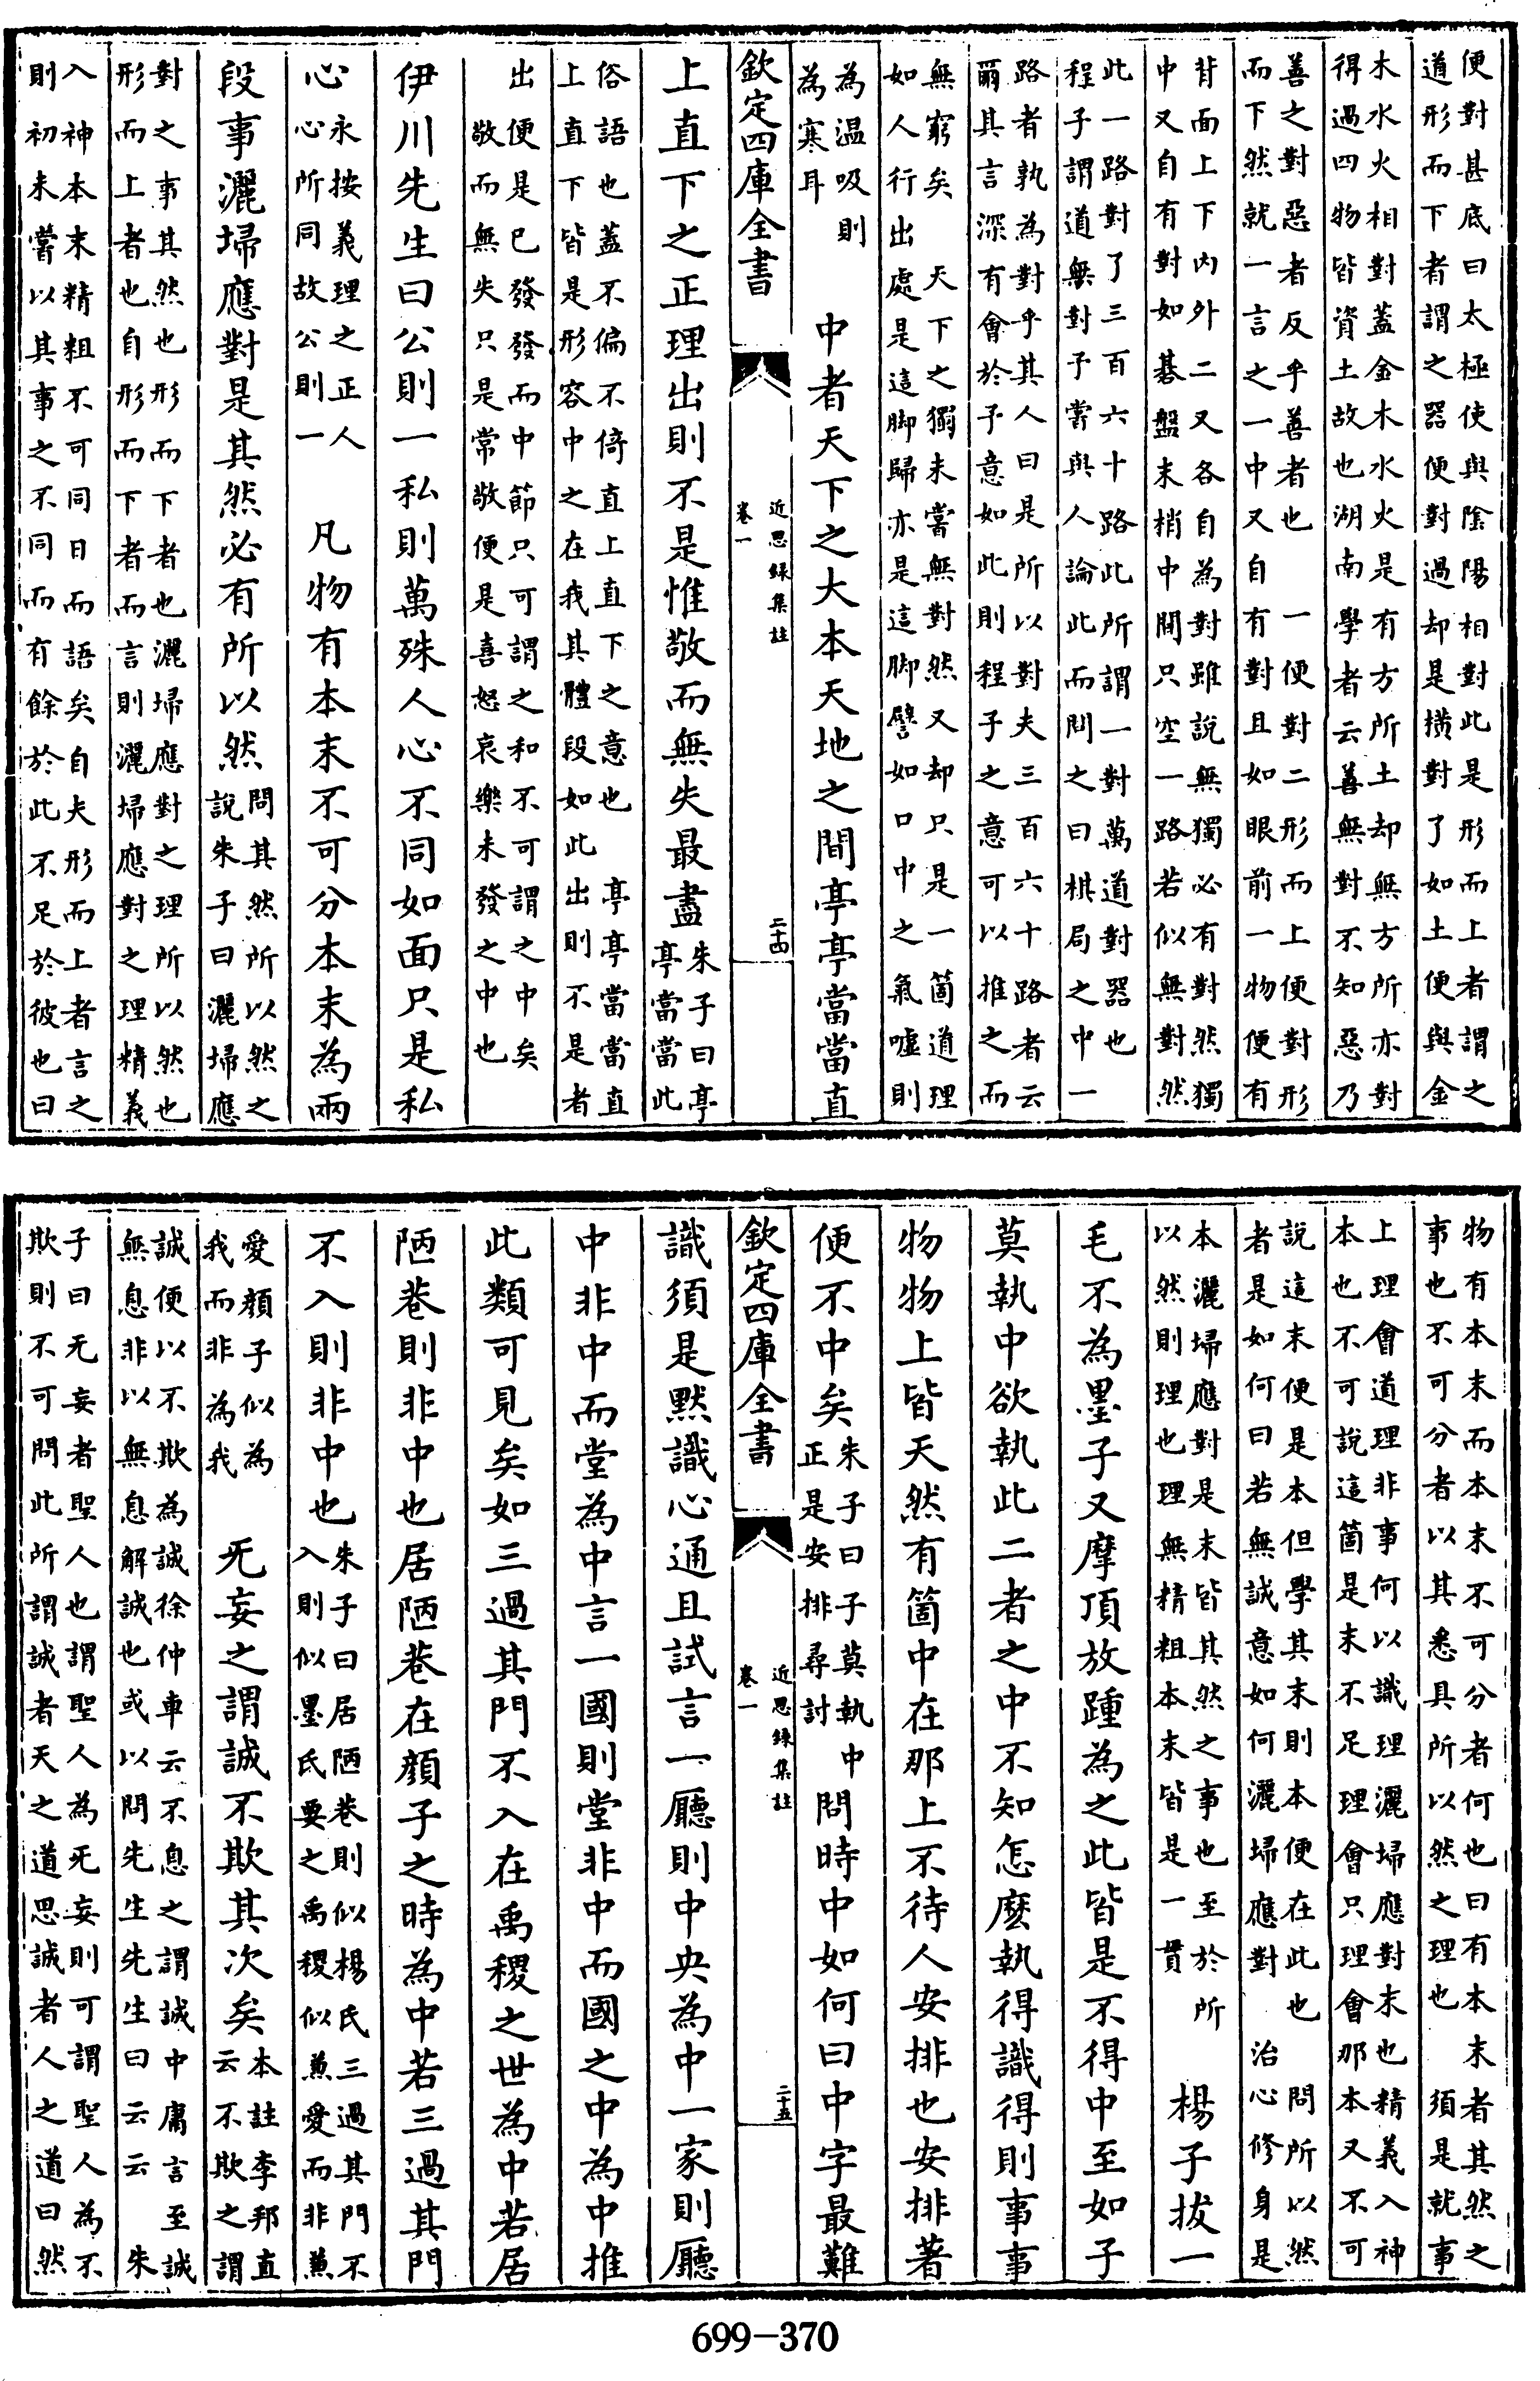 便對甚底曰太極使與陰陽相對此是形而上者謂之
道形而下者謂之器便對過却是橫對了如土便與金
木水火相對蓋金木水火是有方所土却無方所亦對
得過四物皆資土故也湖南學者云善無對不知惡乃
善之對惡者反乎善者也　一便對二形而上便對形
而下然就一言之一中又自有對且如眼前一物便有
背面上下內外二又各自為對雖說無獨必有對然獨
中又自有對如碁盤末梢中間只空一路若似無對然
此一路對了三百六十路此所謂一對萬道對器也
程子謂道無對予嘗與人論此而問之曰棋局之中一
路者孰為對乎其人曰是所以對夫三百六十路者云
爾其言深有會於予意如此則程子之意可以推之而
無窮矣　天下之獨未嘗無對然又却只是一箇道理
如人行出處是這脚歸亦是這脚譬如口中之氣噓則
為溫吸則
為寒耳
中者天下之大本天地之間亭亭當當直
欽定四庫全書
近思錄集註
卷一
二十四
上直下之正理出則不是惟敬而無失最盡
朱子曰亭
亭當當此
俗語也蓋不偏不倚直上直下之意也　亭亭當當直
上直下皆是形容中之在我其體段如此出則不是者
出便是已發發而中節只可謂之和不可謂之中矣
敬而無失只是常敬便是喜怒哀樂未發之中也
伊川先生曰公則一私則萬殊人心不同如面只是私
心
永按義理之正人
心所同故公則一
凡物有本末不可分本末為兩
段事灑埽應對是其然必有所以然
問其然所以然之
說朱子曰灑埽應
對之事其然也形而下者也灑埽應對之理所以然也
形而上者也自形而下者而言則灑埽應對之理精義
入神本末精粗不可同日而語矣自夫形而上者言之
則初未嘗以其事之不同而有餘於此不足於彼也曰
物有本末而本末不可分者何也曰有本末者其然之
事也不可分者以其悉具所以然之理也　須是就事
上理會道理非事何以識理灑埽應對末也精義入神
本也不可說這箇是末不足理會只理會那本又不可
說這末便是本但學其末則本便在此也　問所以然
者是如何曰若無誠意如何灑埽應對　治心修身是
本灑埽應對是末皆其然之事也至於所
以然則理也理無精粗本末皆是一貫
楊子拔一
毛不為墨子又摩頂放踵為之此皆是不得中至如子
莫執中欲執此二者之中不知怎麼執得識得則事事
物物上皆天然有箇中在那上不待人安排也安排著
便不中矣
朱子曰子莫執中
正是安排尋討
問時中如何曰中字最難
欽定四庫全書
近思錄集註
卷一
二十五
識須是默識心通且試言一廳則中央為中一家則廳
中非中而堂為中言一國則堂非中而國之中為中推
此類可見矣如三過其門不入在禹稷之世為中若居
陋巷則非中也居陋巷在顏子之時為中若三過其門
不入則非中也
朱子曰居陋巷則似楊氏三過其門不
入則似墨氏要之禹稷似兼愛而非兼
愛顏子似為
我而非為我
无妄之謂誠不欺其次矣
本註李邦直
云不欺之謂
誠便以不欺為誠徐仲車云不息之謂誠中庸言至誠
無息非以無息解誠也或以問先生先生曰云云　朱
子曰无妄者聖人也謂聖人為无妄則可謂聖人為不
欺則不可問此所謂誠者天之道思誠者人之道曰然
699-370